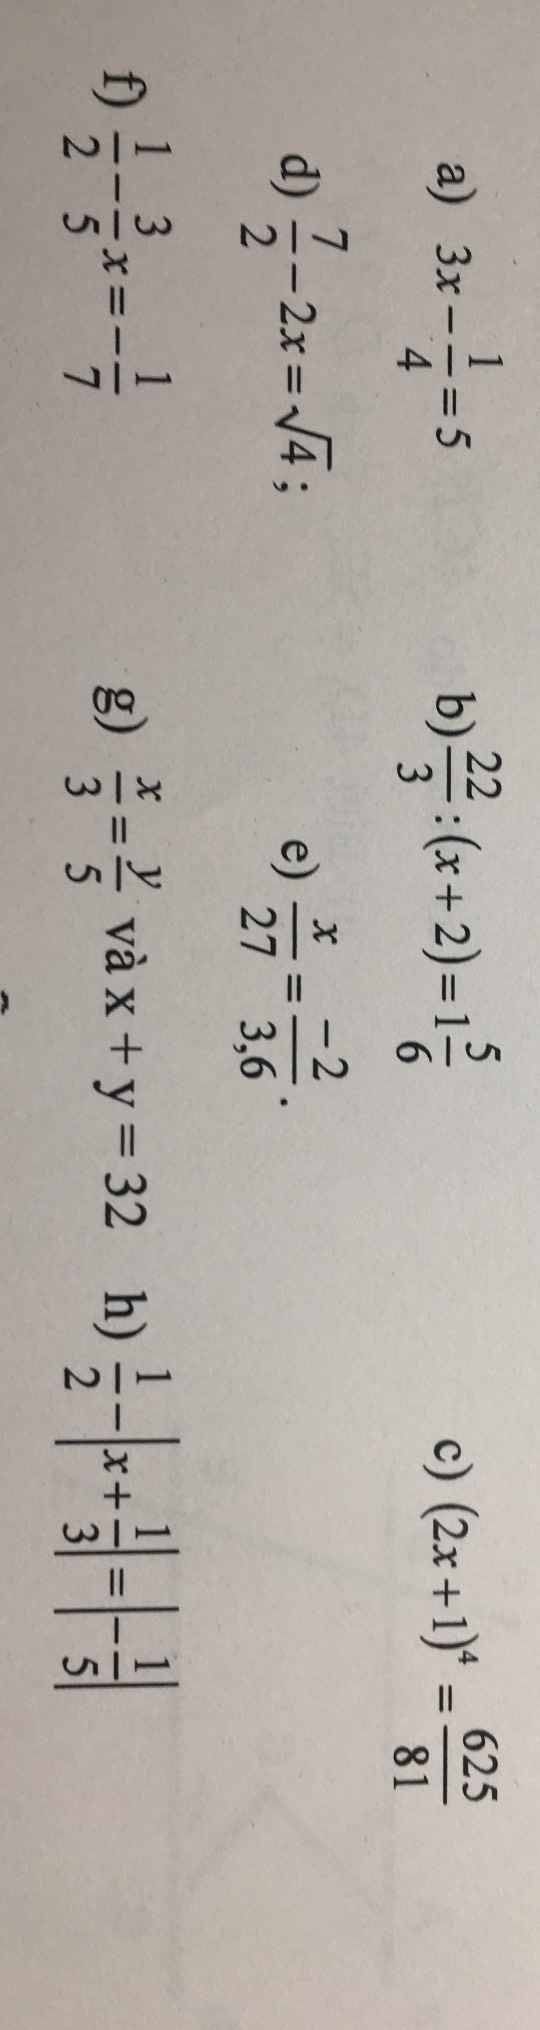 a) 3x − 1/4 = 5 b) 22/3 : (x + 2) = 1 5/6 c) (2x + 1)⁴ = 625/81
d) 7/2 − 2x = √4 ; e) x/27 = −2/3,6 .
f) 1/2 − 3/5 x = − 1/7 g) x/3 = y/5 và x + y = 32 h) 1/2 − |x + 1/3| = |− 1/5|